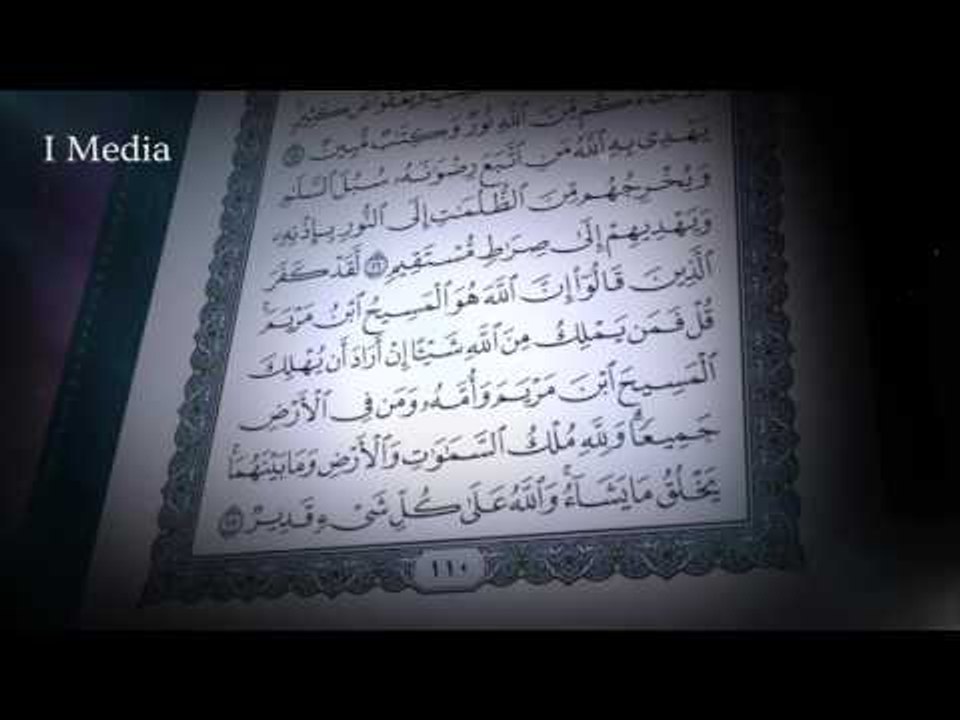 I Media
قَدْ جَاءَكُم مِّنَ ٱللَّهِ نُورٌ وَكِتَٰبٌ مُّبِينٌ ١٥
يَهْدِى بِهِ ٱللَّهُ مَنِ ٱتَّبَعَ رِضْوَٰنَهُۥ سُبُلَ ٱلسَّلَٰمِ
وَيُخْرِجُهُم مِّنَ ٱلظُّلُمَٰتِ إِلَى ٱلنُّورِ بِإِذْنِهِۦ
وَيَهْدِيهِمْ إِلَىٰ صِرَٰطٍ مُّسْتَقِيمٍ ١٦ لَّقَدْ كَفَرَ
ٱلَّذِينَ قَالُوٓا۟ إِنَّ ٱللَّهَ هُوَ ٱلْمَسِيحُ ٱبْنُ مَرْيَمَ ۚ
قُلْ فَمَن يَمْلِكُ مِنَ ٱللَّهِ شَيْـًٔا إِنْ أَرَادَ أَن يُهْلِكَ
ٱلْمَسِيحَ ٱبْنَ مَرْيَمَ وَأُمَّهُۥ وَمَن فِى ٱلْأَرْضِ
جَمِيعًا ۗ وَلِلَّهِ مُلْكُ ٱلسَّمَٰوَٰتِ وَٱلْأَرْضِ وَمَا بَيْنَهُمَا ۚ
يَخْلُقُ مَا يَشَآءُ ۚ وَٱللَّهُ عَلَىٰ كُلِّ شَىْءٍ قَدِيرٌ ١٧
١١٠